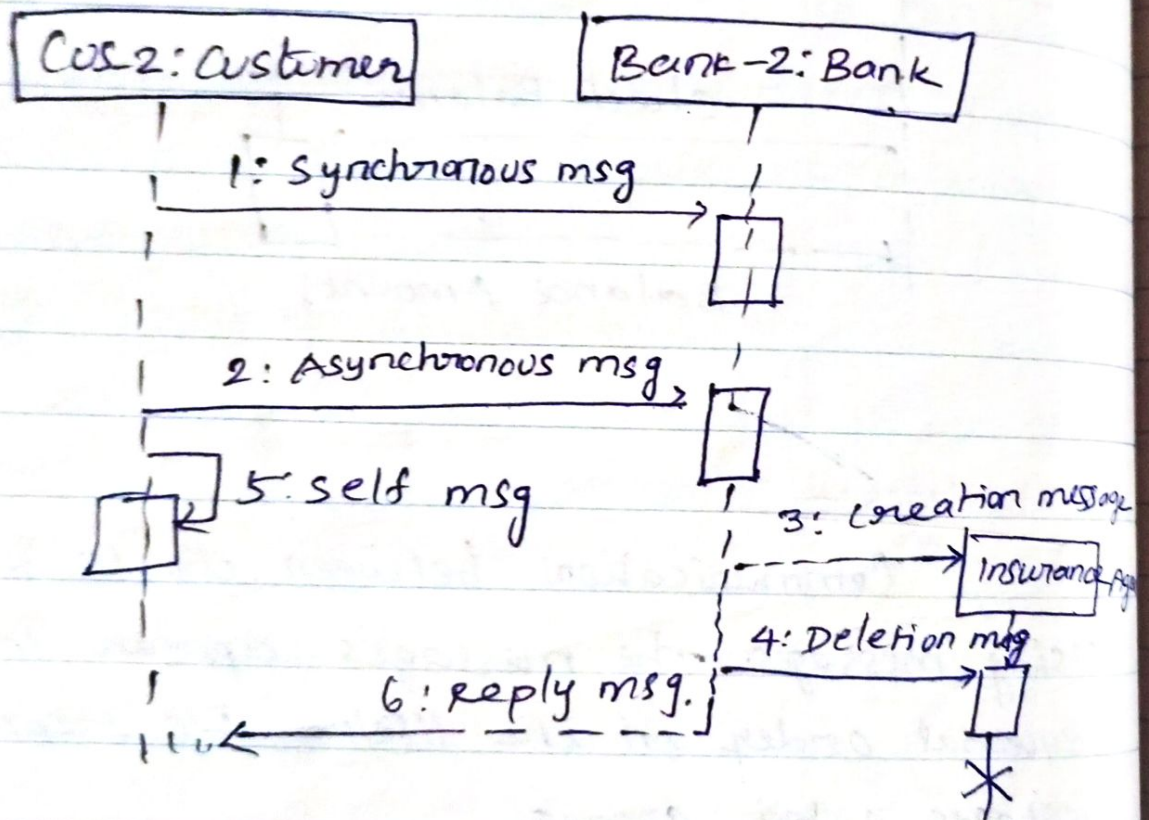 Cus-2: Customer
Bank-2: Bank
1: Synchronous msg
2: Asynchronous msg
5: self msg
3: Creation message
Insurance
4: Deletion msg
6: Reply msg.